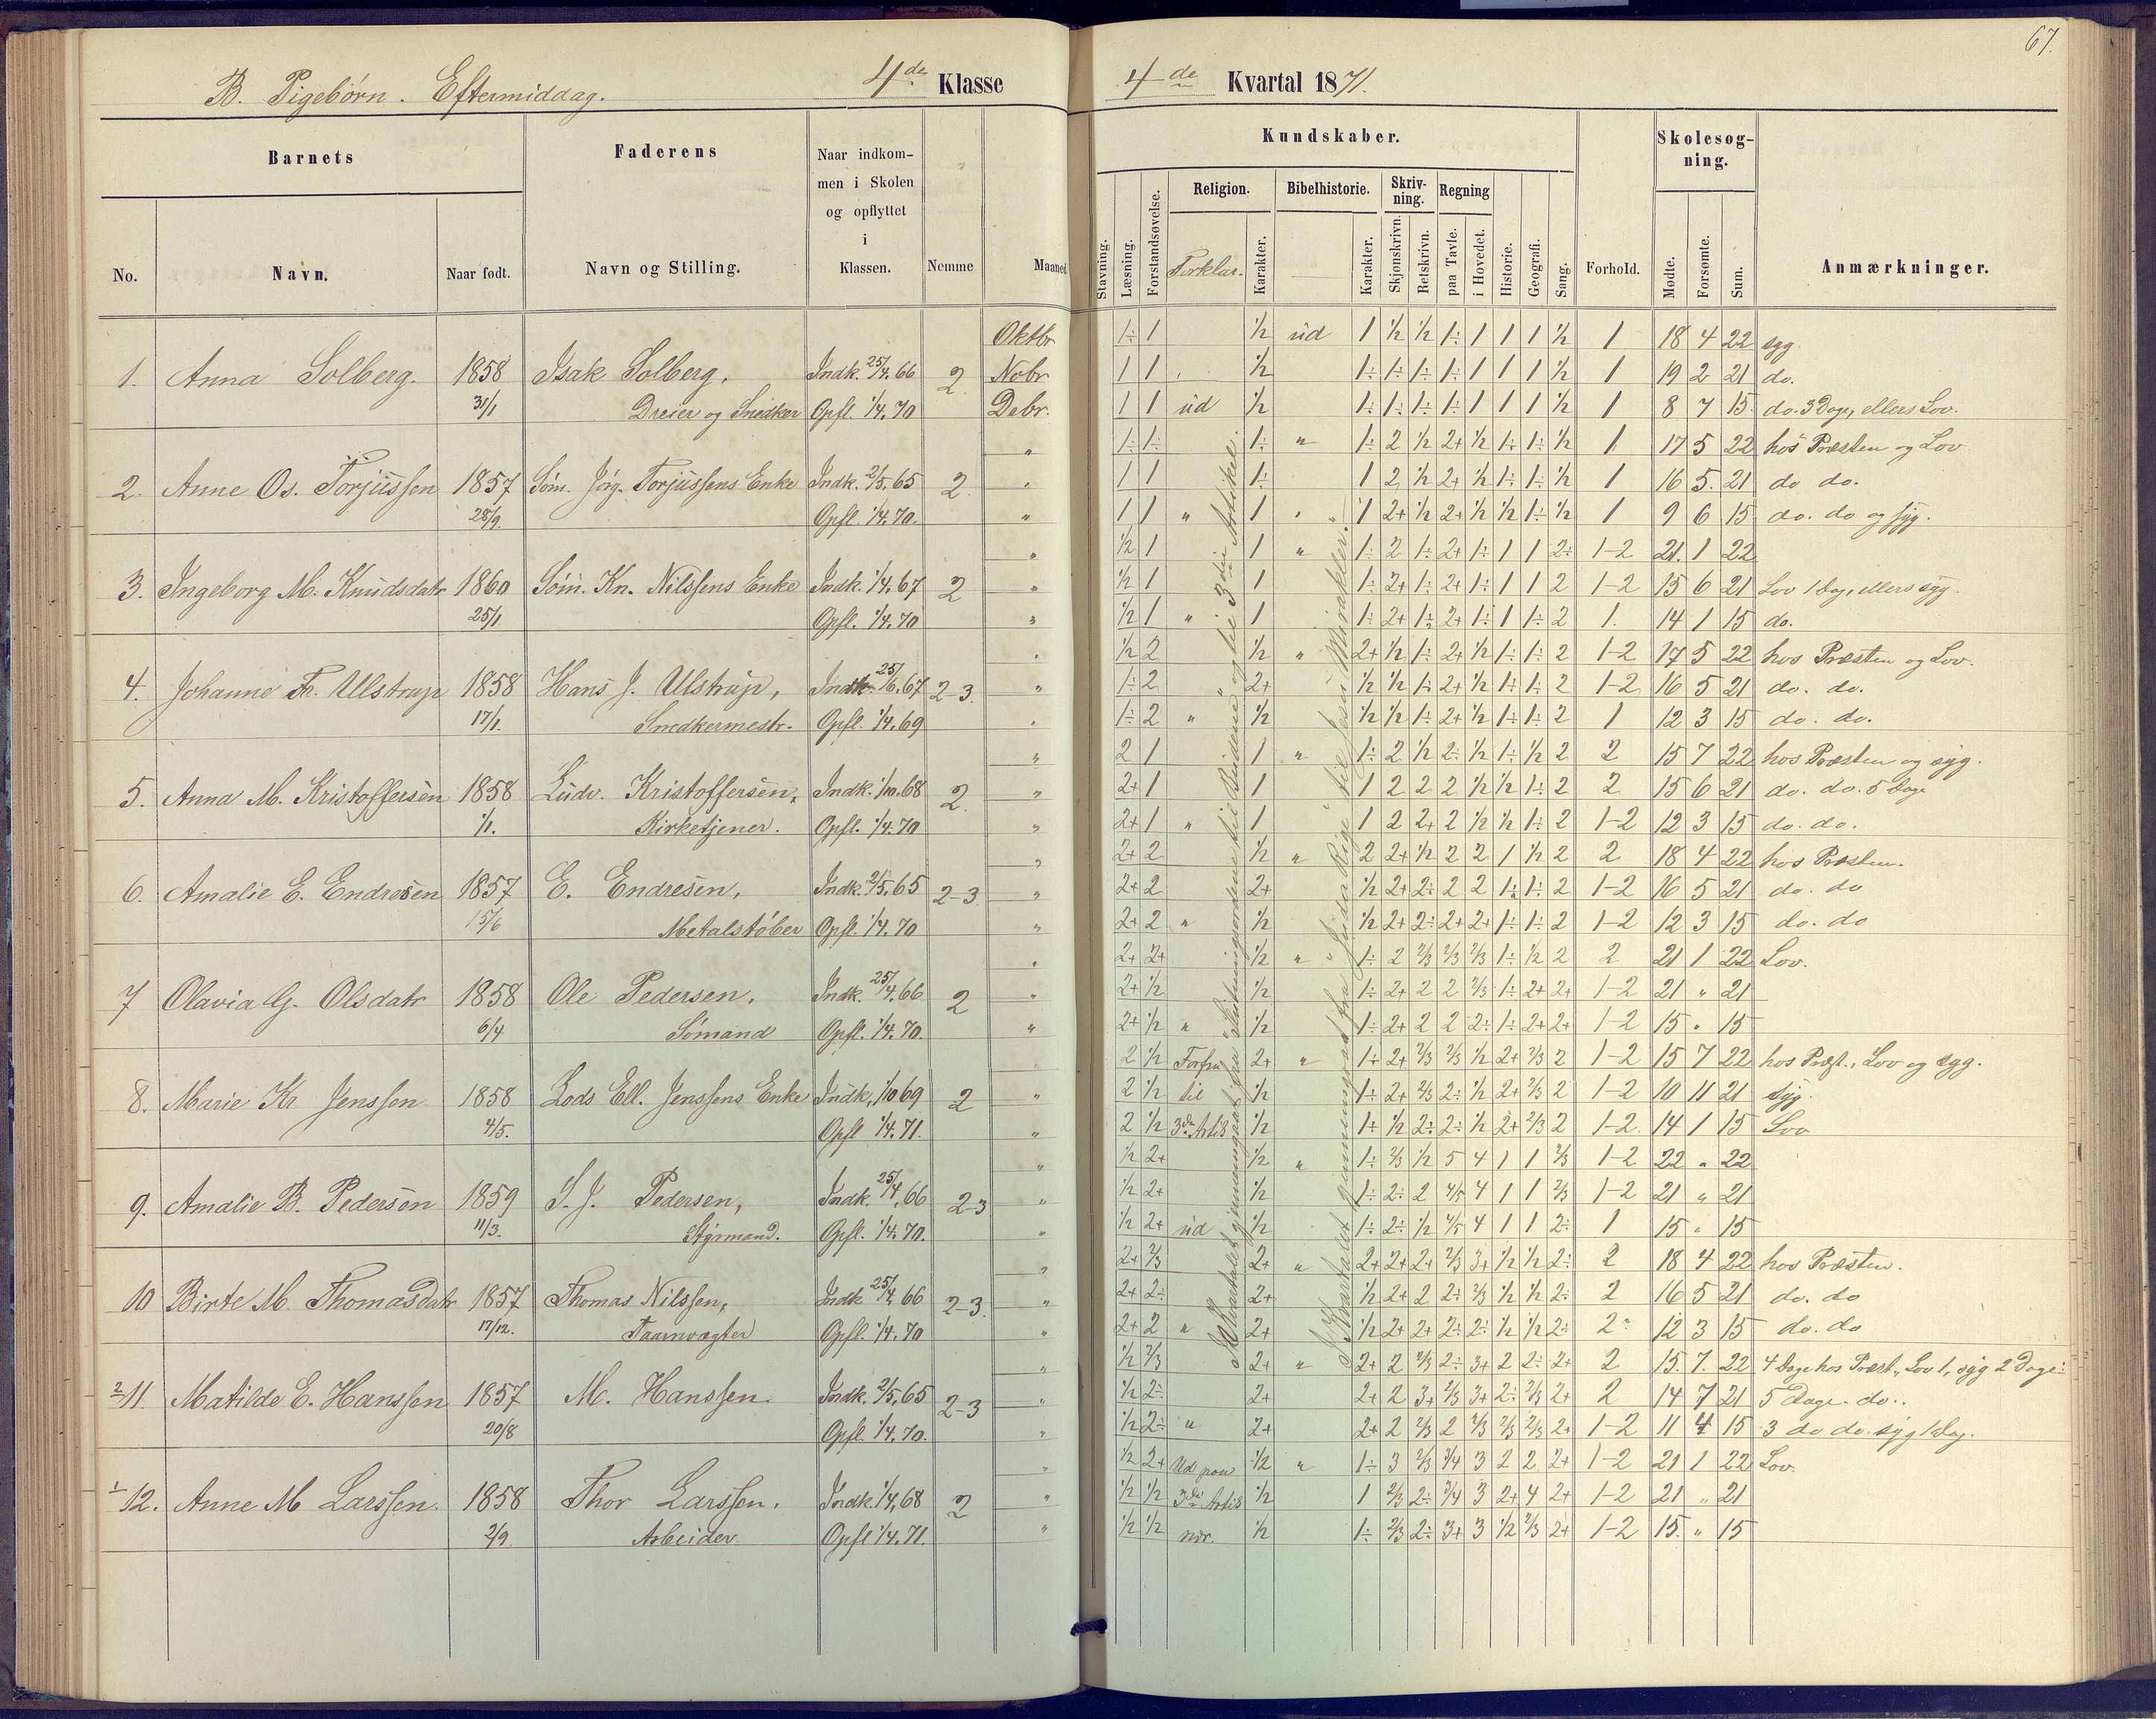 67.
B. Pigebörn. Eftermiddag. 4de Klasse
4de Kvartal 1871.
Barnets
Faderens
Naar indkommen i Skolen og opflyttet i Klassen.
Nemme
Maaned
Kundskaber.
Skolesøgning.
No. Navn. Naar født. Navn og Stilling.
Stavning. Læsning. Forstandsøvelse. Religion. Forklar. Karakter. Bibelhistorie. Karakter. Skrivning. Skjønskrivn. Retskrivn. Regning paa Tavle. i Hovedet. Historie. Geografi. Sang. Forhold. Mødte. Forsømte. Sum. Anmærkninger.
Oktbr 1÷ 1 ½ ud 1 ½ ½ 1÷ 1 1 1 ½ 1 18 4 22 syg.
1. Anna Solberg. 1858 Isak Solberg, Indk. 25/4. 66 2. Nobr 1 1 ½ 1÷ 1÷ 1÷ 1÷ 1 1 1 ½ 1 19 2 21 do.
31/1 Dreier og Snedker Opfl. 1/4. 70 Debr. 1 1 ud ½ 1÷ 1÷ 1÷ 1÷ 1 1 1 ½ 1 8 7 15. do. 3 Dage, ellers Lov.
" 1÷ 1÷ 1÷ " 1÷ 2 ½ 2+ ½ 1÷ 1÷ ½ 1 17 5 22 hos Præsten og Lov
2. Anne Os. Torjussen 1857 Söm. Jörg. Torjussens Enke Indk. 2/5. 65 2 " 1 1 1÷ 1 2 ½ 2+ ½ 1÷ 1÷ ½ 1 16 5. 21 do do.
28/9. Opfl. 1/4. 70. " 1 1 " 1 " 1 2+ ½ 2+ ½ ½ 1÷ ½ 1 9 6 15 do. do og syg.
" ½ 1 1 " 1÷ 2 1÷ 2+ 1÷ 1 1 2÷ 1-2 21. 1 22
3. Ingeborg M. Knudsdatr 1860 Söm. Kn. Nilssens Enke Indk. 1/4. 67 2 " ½ 1 1 1÷ 2+ 1÷ 2+ 1÷ 1 1 2 1-2 15 6 21 Lov 1 Dag, ellers syg.
25/1 Opfl. 1/4. 70 " ½ 1 " 1 1÷ 2+ 1÷ 2+ 1÷ 1 1÷ 2 1. 14 1 15 do.
" ½ 2 ½ " 2+ ½ 1÷ 2+ ½ 1÷ 1÷ 2 1-2 17 5 22 hos Præsten og Lov.
4. Johanne Fr. Ullstrup 1858 Hans J. Ullstrup, Indk. 25/6. 67 2-3. " 1÷ 2 2+ ½ ½ 1÷ 2+ ½ 1÷ 1÷ 2 1-2 16 5 21 do. do.
17/1. Snedkermestr. Opfl. 1/4. 69 " 1÷ 2 " ½ ½ ½ 1÷ 2+ ½ 1÷ 1÷ 2 1 12 3 15 do. do.
" 2 1 1 " 1÷ 2 ½ 2÷ ½ 1÷ ½ 2 2 15 7 22 hos Præsten og syg.
5. Anna M. Kristoffersen 1858 Ludv. Kristoffersen, Indk. 1/10. 68 2. " 2+ 1 1 1 2 2 2 ½ ½ 1÷ 2 2 15 6 21 do. do. 5 Dage
1/1. Kirketjener. Opfl. 1/4. 70 " 2+ 1 " 1 1 2 2+ 2 ½ ½ 1÷ 2 1-2 12 3 15 do. do.
" 2+ 2 ½ " 2 2+ ½ 2 2 1 ½ 2 2 18 4 22 hos Præsten.
6. Amalie E. Endresen 1857 E. Endresen, Indk. 2/5. 65 2-3. " 2+ 2 2+ ½ 2+ 2÷ 2 2 1÷ 1÷ 2 1-2 16 5 21 do. do
15/6 Metalstöber Opfl. 1/4. 70 " 2+ 2 " ½ ½ 2+ 2÷ 2+ 2+ 1÷ 1÷ 2 1-2 12 3 15 do. do
" 2+ 2+ ½ " 1÷ 2 2/3 2/3 2/3 1÷ ½ 2 2 21 1 22 Lov.
7 Olavia G. Olsdatr 1858 Ole Pedersen, Indk. 25/4. 66 2 " 2+ ½ ½ 1÷ 2+ 2 2 2/3 1÷ 2+ 2+ 1-2 21 " 21
6/4 Sömand Opfl. 1/4. 70. " 2+ ½ " ½ 1÷ 2+ 2 2 2÷ 1÷ 2+ 2+ 1-2 15 " 15
2 ½ Forfra 2+ " 1÷ 2+ 2/3 2/3 ½ 2+ 2/3 2 1-2 15 7 22 hos Præst., Lov og syg.
8. Marie Kr Jenssen 1858 Lods Ell. Jenssens Enke Indk. 1/10 69 2 " 2 ½ til ½ 1÷ 2+ 2/3 2÷ ½ 2+ 2/3 2 1-2 10 11 21 syg.
4/5. Opfl 1/4. 71. " 2 ½ 3de Artik ½ 1÷ ½ 2÷ 2÷ ½ 2+ 2/3 2 1-2. 14 1 15 Lov
" ½ 2+ ½ " 1÷ 2/3 ½ 5 4 1 1 2/3 1-2 22 " 22
9. Amalie B. Pedersen 1859 S. J. Pedersen, Indk. 25/4. 66 2-3 " ½ 2+ ½ 1÷ 2÷ 2 4/5 4 1 1 2/3 1-2 21 " 21
11/3. Styrmand. Opfl. 1/4. 70. " ½ 2+ ud ½ 1÷ 2÷ ½ 4/5 4 1 1 2÷ 1 15 " 15
" 2+ 2/3 2+ " 2+ 2+ 2+ 2/3 3+ ½ ½ 2÷ 2 18 4 22 hos Præsten.
10 Birte M. Thomasdatr 1857 Thomas Nilssen, Indk 25/4 66 2-3. " 2+ 2÷ 2+ ½ 2+ 2 2÷ 2/3 ½ ½ 2÷ 2 16 5 21 do. do
17/12. Taarnvægter Opfl. 1/4. 70 " 2+ 2 " 2+ ½ 2+ 2+ 2÷ 2÷ ½ ½ 2÷ 2 12 3 15 do. do
" ½ 2/3 2+ " 2+ 2 2/3 2÷ 3+ 2 2÷ 2+ 2 15. 7. 22 4 Dage hos Præst., Lov 1, syg 2 Dage.
11. Matilde E. Hanssen 1857 M. Hanssen. Indk. 2/5. 65 2-3 " ½ 2÷ 2+ 2+ 2 3+ 2/3 3+ 2÷ 2/3 2+ 2 14 7 21 5 Dage do.
20/8 Opfl. 1/4. 70. " ½ 2÷ " 2+ 2+ 2 2/3 2 2/3 2/3 2/3 2+ 1-2 11 4 15 3 do do. syg 1 Dag.
" ½ 2+ Ud paa ½ " 1÷ 3 2/3 3/4 3 2 2 2+ 1-2 21 1 22 Lov.
12. Anne M Larssen. 1858 Thor Larssen, Indk 1/4. 68 2 " ½ ½ 3die Artik ½ 1 2/3 2÷ 3/4 3 2+ 4 2+ 1-2 21 " 21
2/9 Arbeider Opfl 1/4. 71. " ½ ½ nær. ½ 1÷ 2/3 2÷ 3+ 3 ½ 2/3 2+ 1-2 15. " 15
I Kvartalet gjennemgaaet fra Slutningsordene til Budene og til 3die Artikel.
I Kvartalet gjennemgaaet fra Juda Rige til Jesu Mirakler.